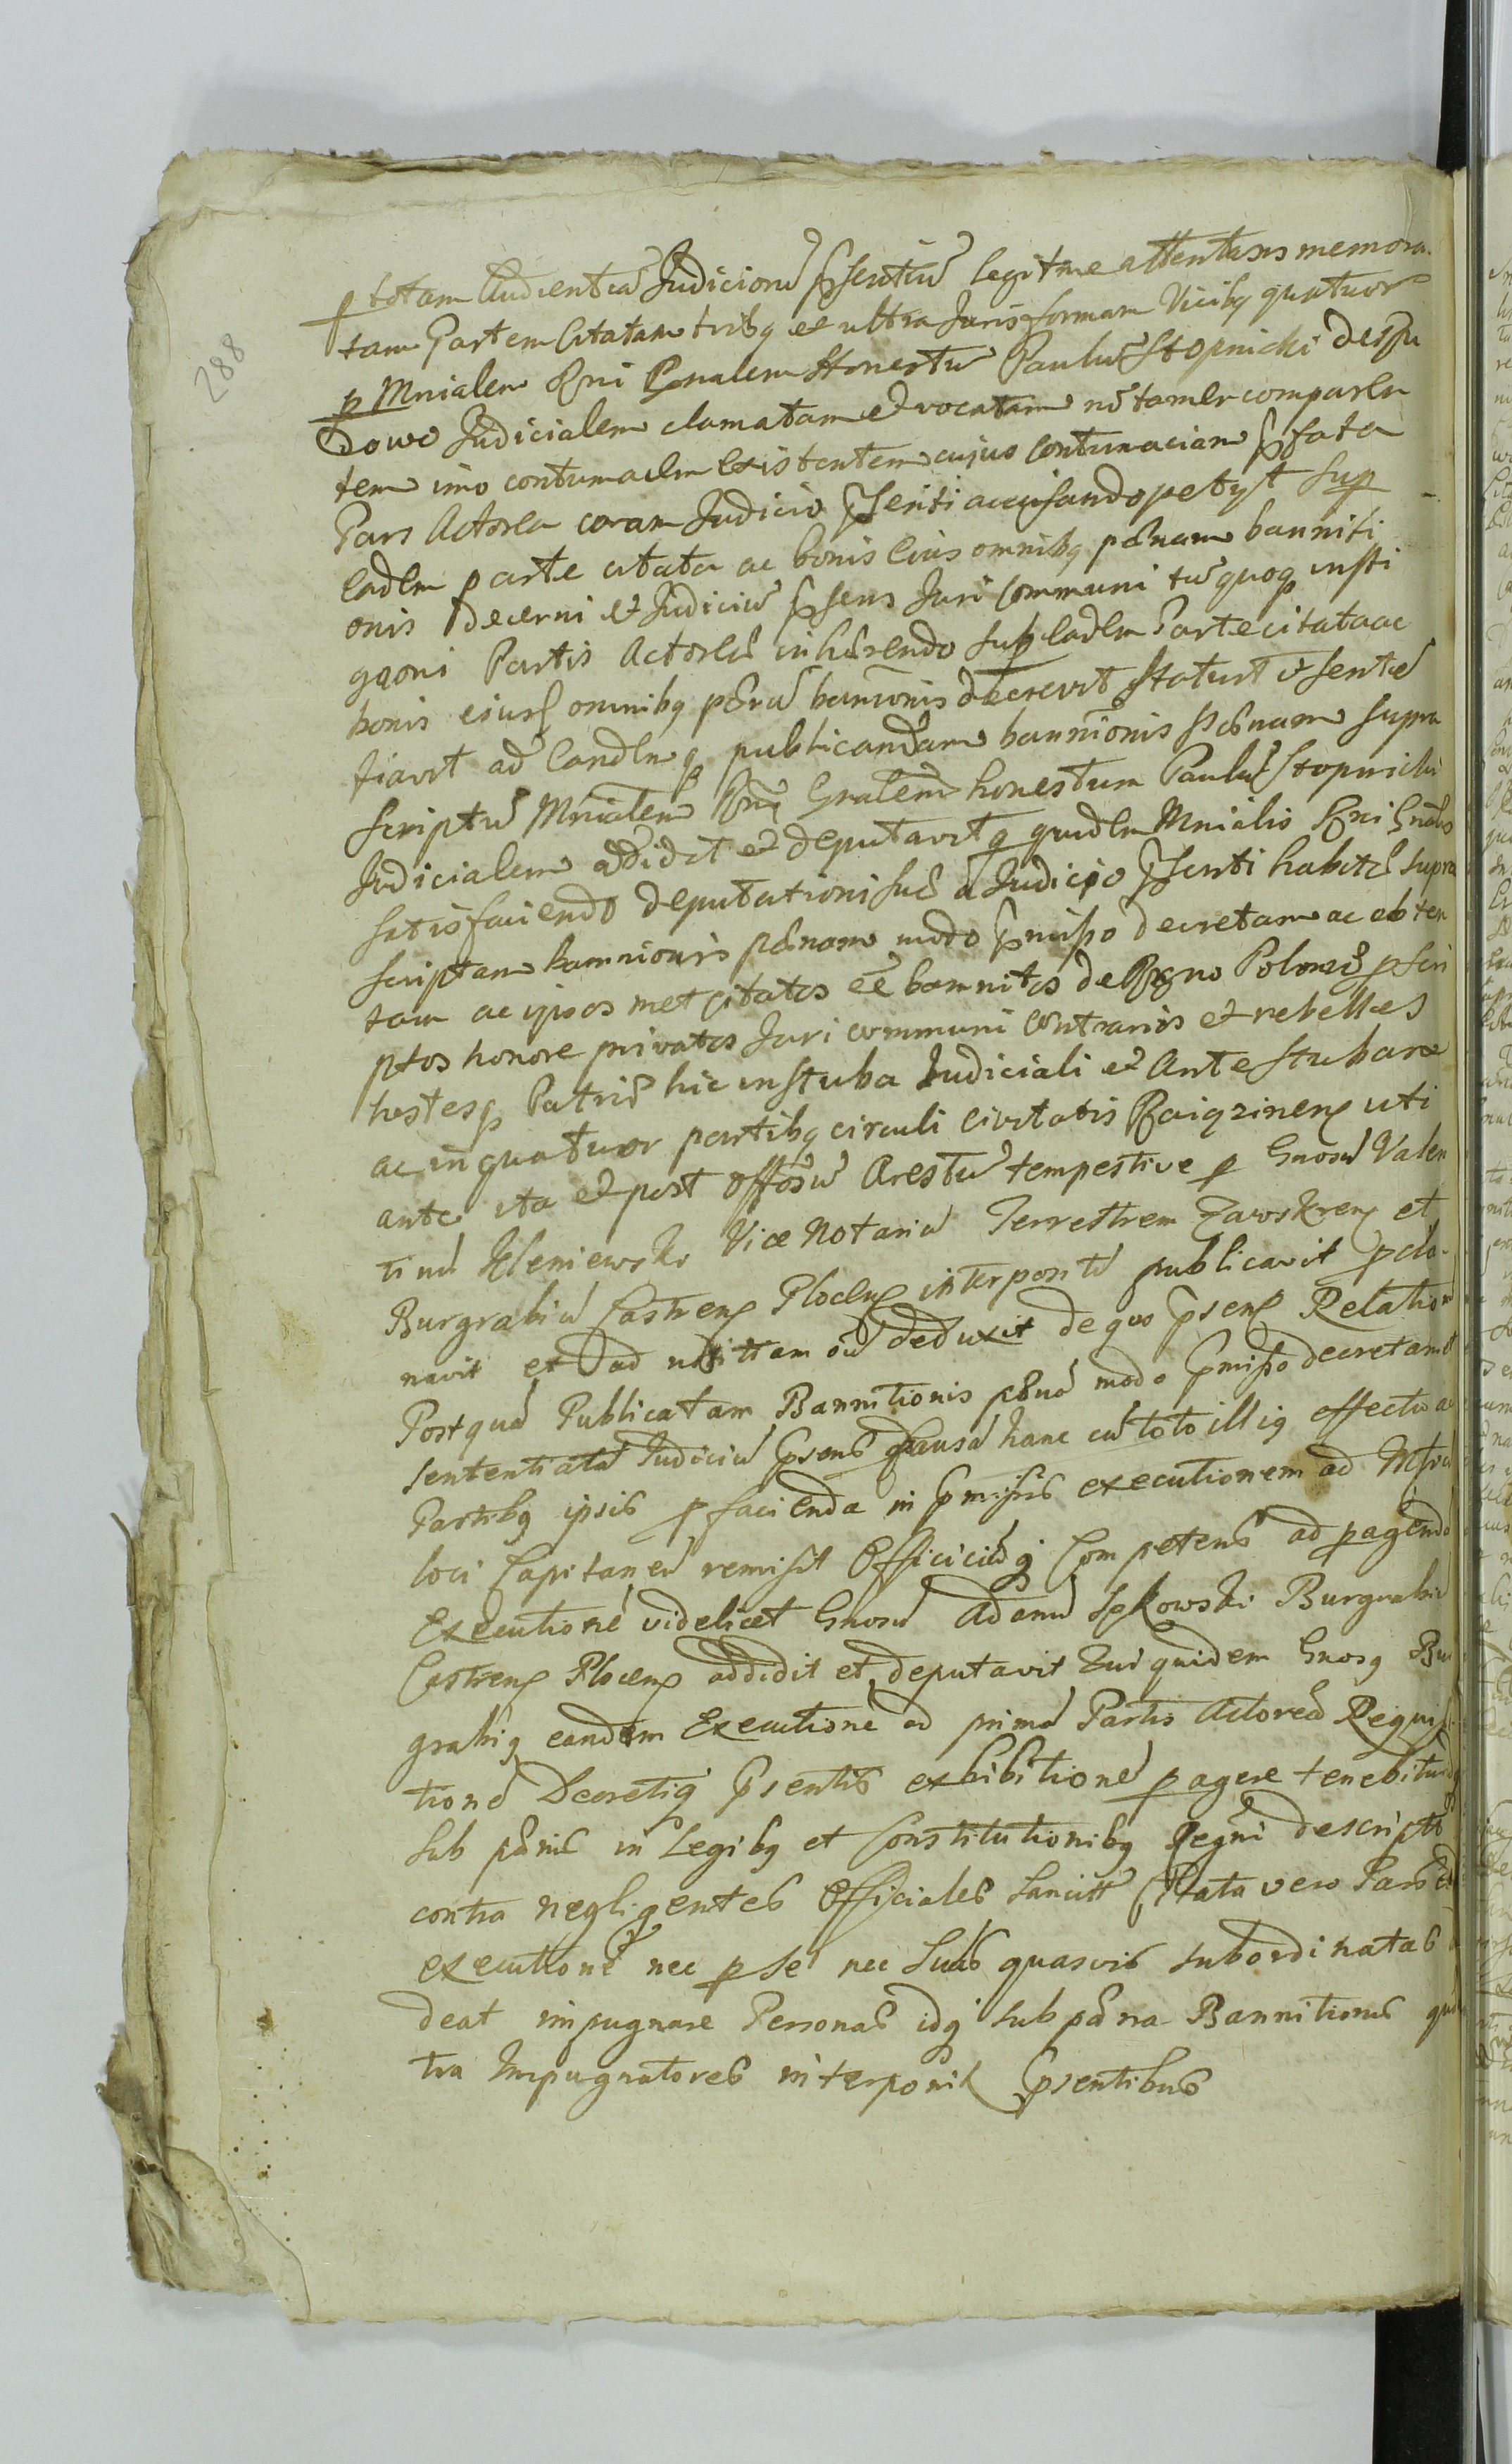 288
p totam Audientiā Judiciorū p̃sentiū legitime attentans memora
tam Partem Citatam tribq et ultra Juris formam Vicibq quatuor
p Mnialem Rni Gnalem Honestū Paulū Stopnicki despu
Judicialem clamatam et vocatam nō tamen comparen
tem imo contumacem existentem cujus contumaciam p̃fata
Pars Actorea coram Judicio p̃senti accusando petyt sup
eadem parte citata ac bonis eius omnibq pœnam banniti
onis decerni et Judiciū p̃sens Juri Communi tū quoq insti
gaoni Partis Actoreæ inhærendo sup eadem Parte citata ac
bonis eiusq omnibq pœnā bannionis decrevit statuit et senten
tiavit ad eandemq publicandam bannionis pœnam supra
scriptū Mnialem Rni Gnalem honestum Paulū Stopnicki
Judicialem addidit et deputavit q quidem Mnialis Rni Gnalis
satisfaciendo deputationi suæ a Judicio p̃senti habitæ supra
scriptam bannionis pœnam modo p̃misso decretam ac obten
tam ac ipsos met citatos eē bannitos de Regno Poloniæ pscri
ptos honore privatos Juri communi contrarios et rebelles
hostesq Patriæ hic in stuba Judiciali et Ante stubam
ac in quatuor partibq circuli Civitatis Raiqzinens uti
ante ita et post offōsū Arestū tempestive p Gnosū Valen
tinū Kleniewski Vice Notariū Terrestrem Zawskrens et
Burgrabiū Castrens Plocens interpositū publicavit pclā
navit et ad notitiam oiū deduxit de quo p̃sens Relation
Postquā Publicatam Bannitionis pœnā modo p̃misso decretam et
sententiatā Judiciū p̃sens Causā hanc cū toto illiq effectu ac
Partibq ipsis p facienda in p̃missis executionem ad
loci Capitaneū remisit Officiciūq Competens ad pagendā
Executionē videlicet Gnosū Adamū Burgrabiū
Castrens Plocens addidit et deputavit Qui quidem Gnosq Bur
grabiq eandem Executionē ad primā Partis Actoreæ Requisi
tionē Decretiq p̃sentis exhibitionē pagere tenebitur
sub pœnis in Legibq et Constitutionibq Regni descriptis
contra negligentes Officiales sancitt Citata vero Pars
executionē nec p se nec suas quasvis subordinatas
deat impugnare Personas idq sub pœna Bannitionis
tra Impugnatores interponit p̃sentibus